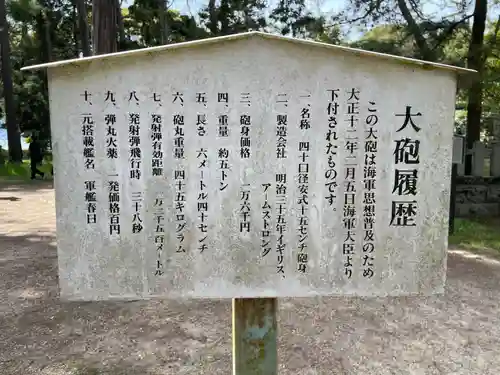 大砲履歴
この大砲は海軍思想普及のため
大正十二年二月五日海軍大臣より
下付されたものです。
一、名称 四十口径安式十五センチ砲身
二、製造会社 明治三十五年イギリス、
アームストロング
三、砲身価格 二万六千円
四、重量 約五トン
五、長さ 六メートル四十センチ
六、砲丸重量 四十五キログラム
七、発射弾有効距離 一万二千五百メートル
八、発射弾飛行時 三十八秒
九、弾丸火薬 一発価格百円
十、元搭載艦名 軍艦春日